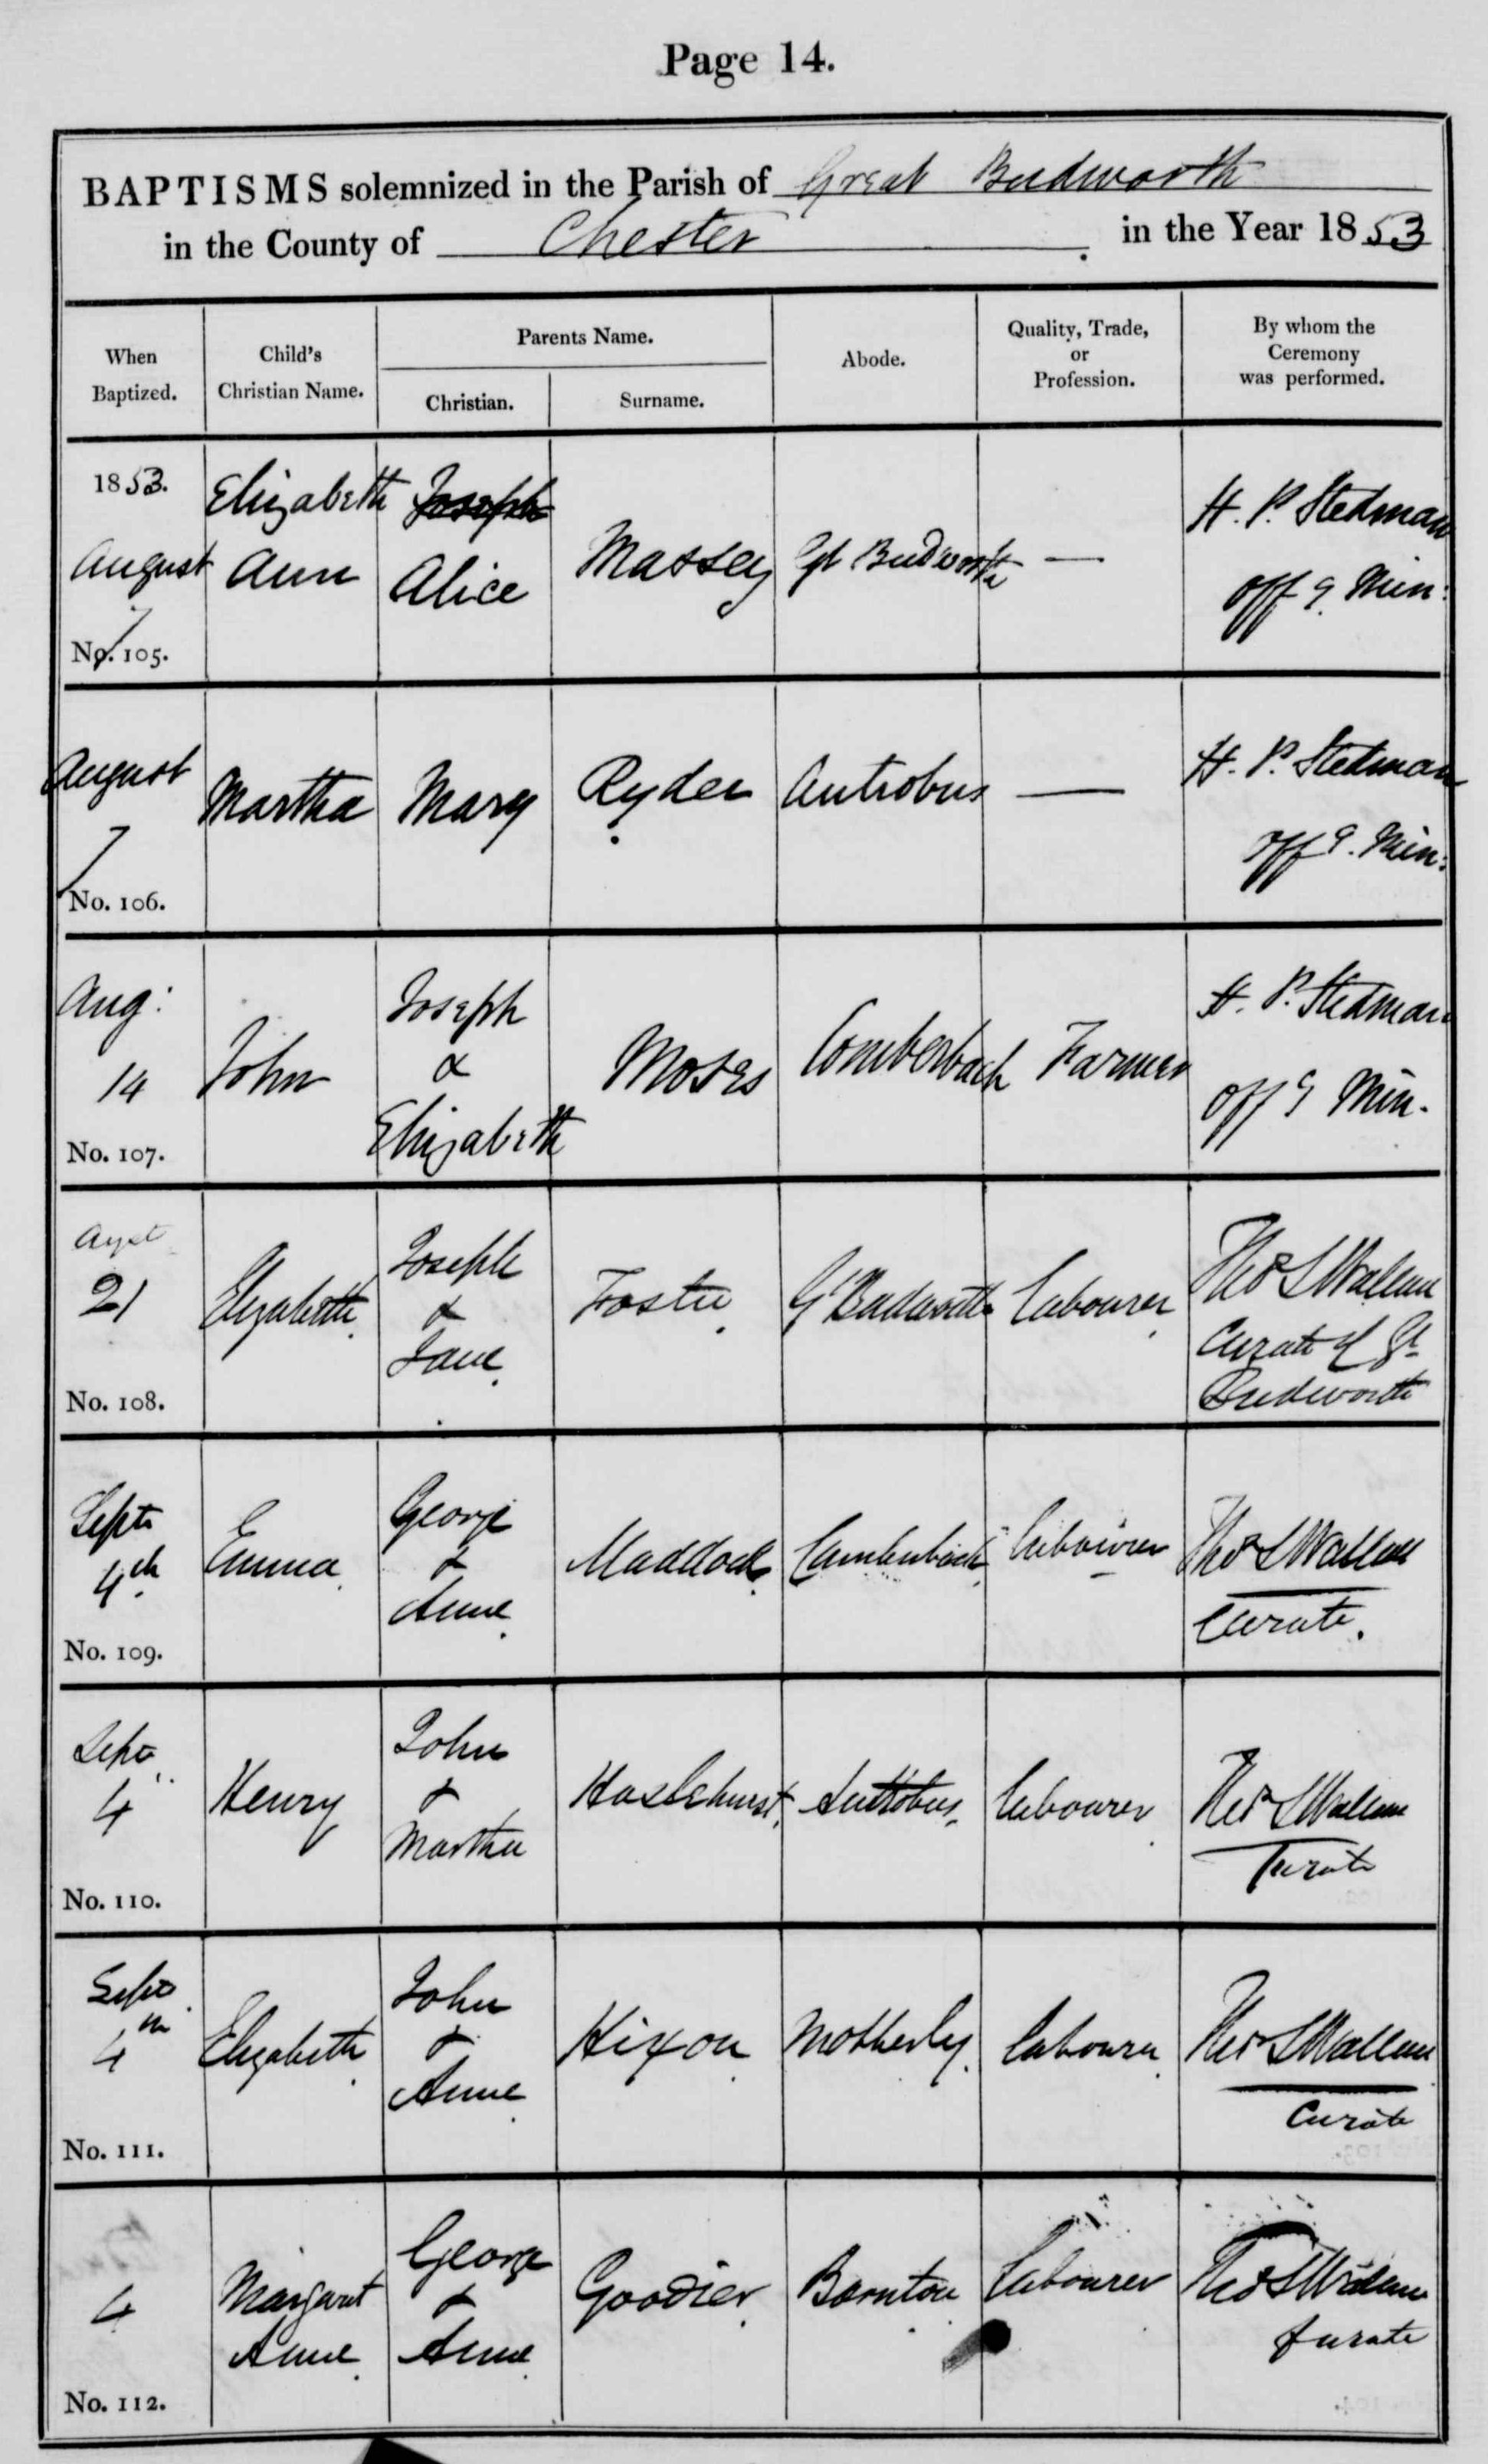 Page 14.
BAPTISMS solemnized in the Parish of Great Budworth
in the County of Chester in the Year 1853
When
Baptized.
Child's
Christian Name.
Parents Name.
Christian.
Surname.
Abode.
Quality, Trade,
or
Profession.
By whom the
Ceremony
was performed.
1853.
August
7
No. 105.
Elizabeth
Ann
Joseph
Alice
Massey
Gt Budworth
—
H. P. Stedman
off g Min:
August
7
No. 106.
Martha
Mary
Ryder
Antrobus
—
H. P. Stedman
off g. Min:
Aug:
14
No. 107.
John
Joseph
&
Elizabeth
Moses
Comberbach
Farmer
H. P. Stedman
off g Min.
Augst
21
No. 108.
Elizabeth
Joseph
&
Jane
Foster
Gt Budworth
Labourer
Thos S
Curate of Gt
Budworth
Septr
4th
No. 109.
Emma
George
&
Anne
Maddock
Cumberbach
Labourer
Thos S
Curate.
Septr
4
No. 110.
Henry
John
&
Martha
Haslehurst
Antrobus
Labourer
Thos S
Curate
Septr
4th
No. 111.
Elizabeth
John
&
Anne
Hixon
Motherly
Labourer
Thos S
Curate
4
No. 112.
Margaret
Anne
George
&
Anne
Goodier
Barnton
Labourer
Thos S
Curate